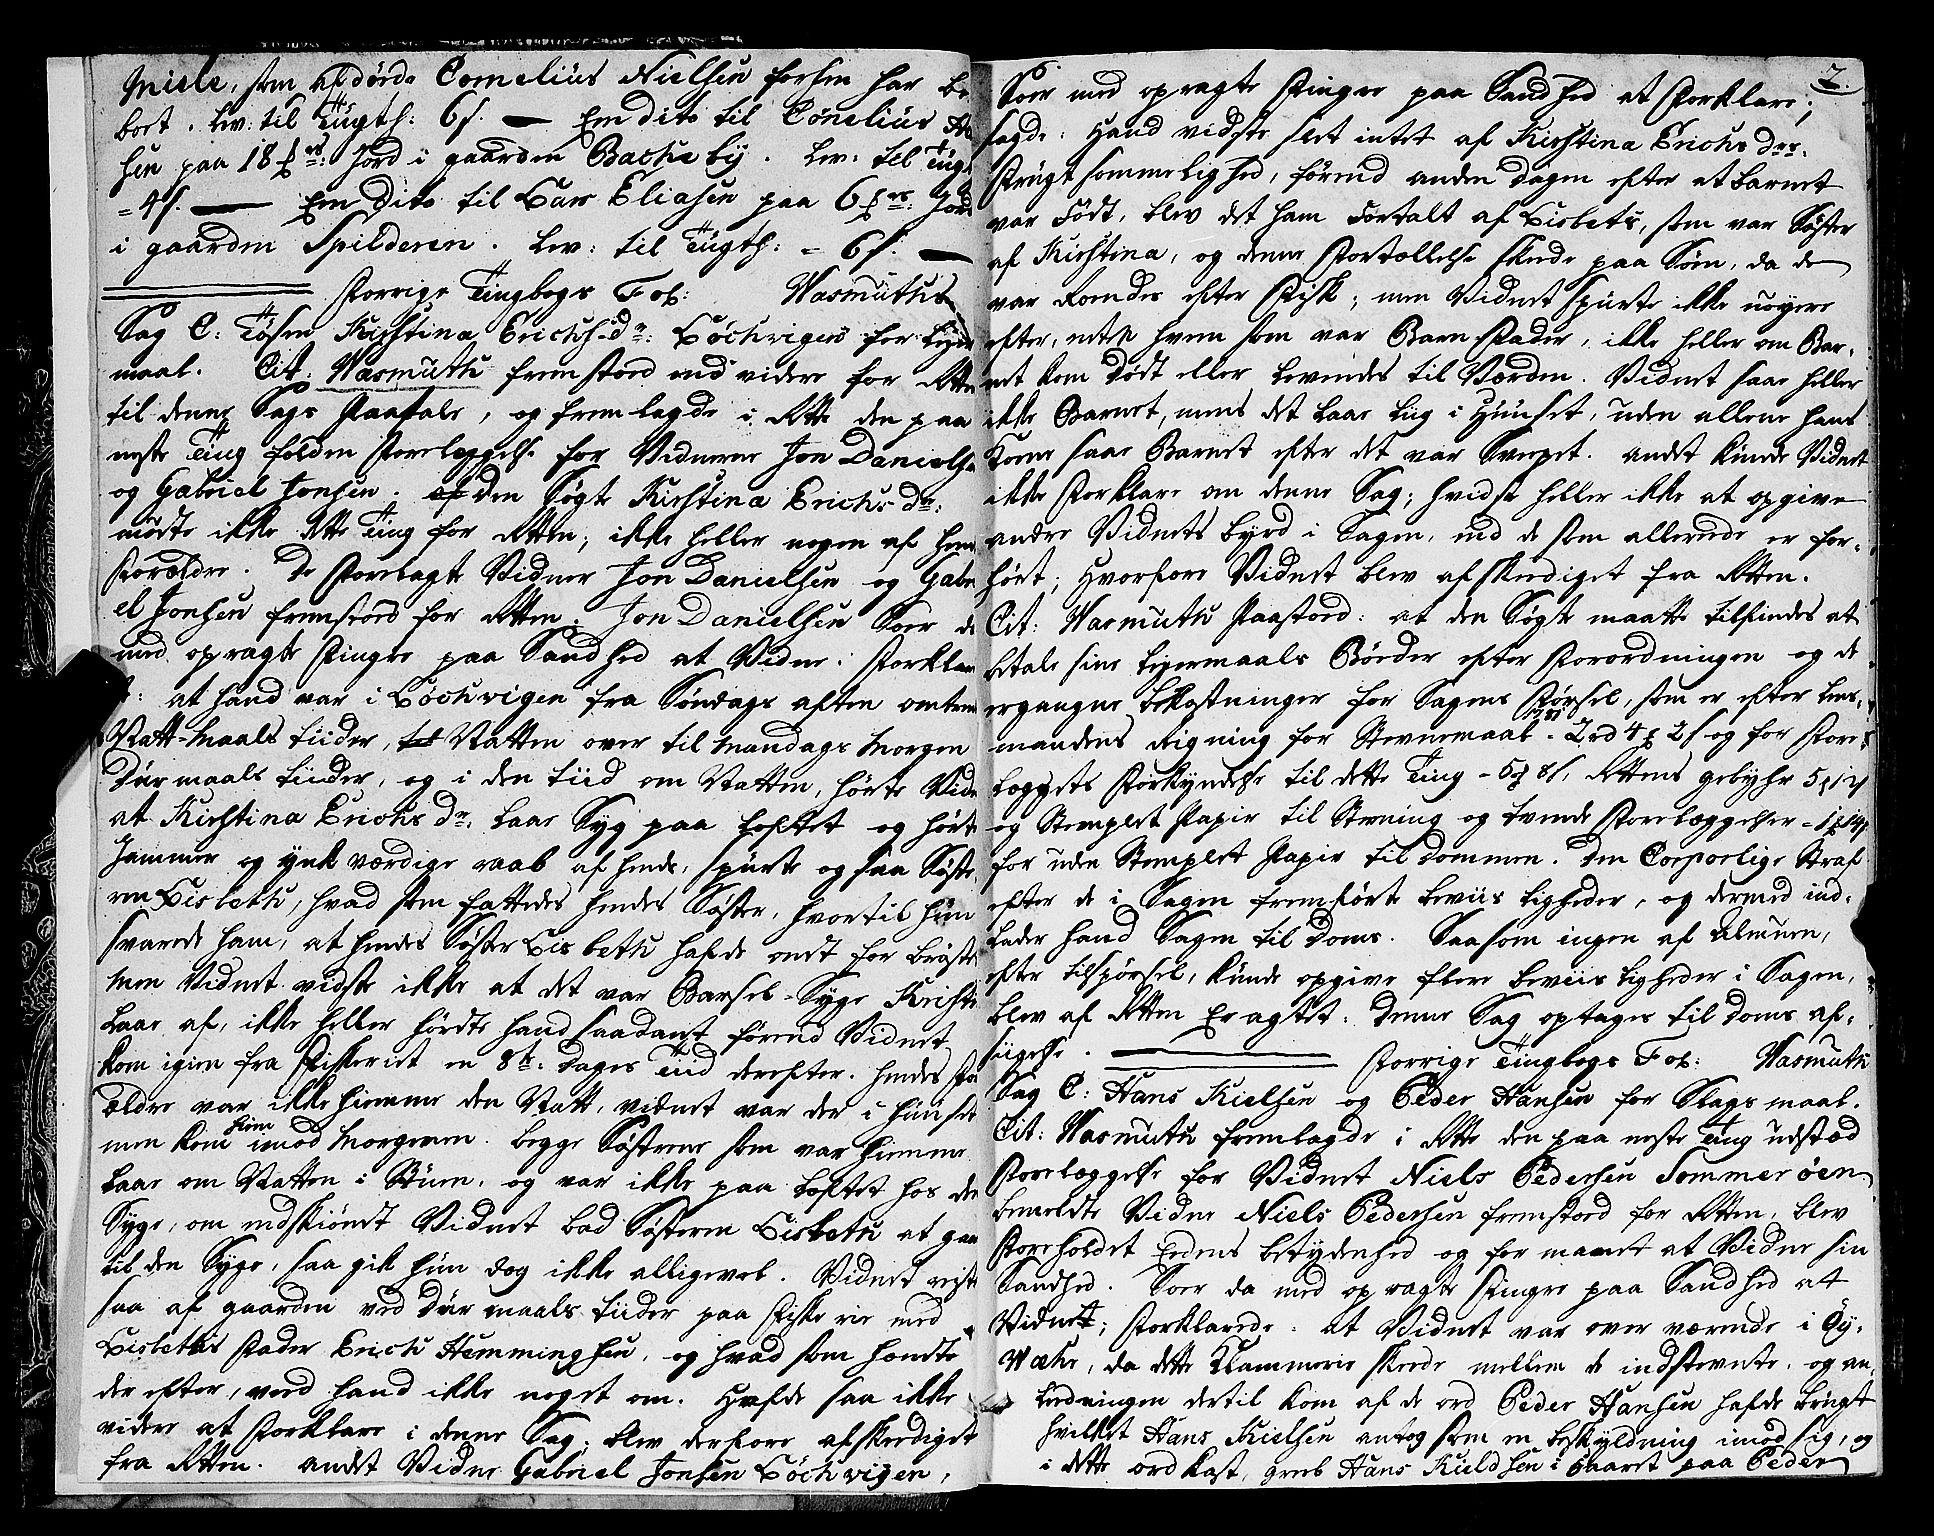 Miele, som afdøde Cornelius Nielsen forhen har be
boet. lev: til Tügth: 6 s. — Een dito til Cornelius
sen paa 18 jord i gaarden Backeby. Lev: til Tügt
= 4 s. — Een Dito til Lars Eliasen paa 6 Jord
i gaarden Spilderen. Lev: til Tügth: = 6 s. —
Forrige Tingbogs Fol: Wasmuths
Sag C: Tøsen Kirstina Erichsdr: Lochvigen for leyer
maal. Cit: Wasmuth fremstoed end videre for Rette
til denne Sags Paatale, og fremlagde i Rette den paa
neste Ting falden Forelæggelse for Vidnerne Jon Danielse
og Gabriel Jonsen. den Søgte Kirstina Erichsdr:
mødte ikke dette Ting for Retten; ikke heller nogen af hen
Forældre. De Forelagte Vidner Jon Danielsen og Gabri
el Jonsen fremstoed for Retten. Jon Danielsen Soer da
med opragte Fingre paa Sandhed at Vidne: Forklare
at hand var i Lochvigen fra Søndags aften omtrent
Natt-maals tiider, Natten over til Mandags Morgen
Dur maals tiider, og i den tiid om Natten, hørte Vidne
at Kirstina Erichsdr: laae Syg paa loftet og hørte
Jammer og ynk værdige raab af hende, spurte og saa Søste
ren Lisbeth, hvad som fattedes hendes Søster, hvortil hun
svarede ham, at hendes Søster Lisbeth hafde ondt for brøste
Men Vidnet vidste ikke at det var Barsel-Syge Kirsti
laae af, ikke heller hørdte hand saadant førend Vidnet
kom igien fra Fiskeriet en 8te dages Tiid derefter. hendes For
ældre var ikke hiemme den Natt, vidnet var der i huuset
men kom hiem imod Morgenen. begge Søstrene som var hiemme
laae om Natten i Stuen, og var ikke paa loftet hos den
Syge, om endskiøndt Vidnet bad Søsteren Lisbeth at gaae
til den Syge, saa gik hun dog ikke alligevel. Vidnet reiste
saa af gaarden ved Dur maals tiider paa Fiske rie med
Lisbeths Fader Erich Hemmingsen, og hvad som hændte
der efter, veed hand ikke noget om. Hafde saa ikke
videre at Forklare i denne Sag, blev derfore afskediget
fra Retten. andet Vidne Gabriel Jonsen Lochvigen,
2.
Soer med opragte Fingre paa Sandhed at Forklare;
sagde: Hand vidste slet intet af Kirstina Erichsdrs.
Frugtsommelighed, førend anden dagen efter at barnet
var Født, blev det ham Fortalt af Lisbets, som var Søster
af Kirstina, og denne Fortællelse skede paa Søen, da de
var Roendes efter Fisk; men Vidnet spurte ikke nøyere
efter, enten hvem som var Barn Fader, ikke heller om Bar-
net kom dødt eller levendes til Verden. Vidnet saae heller
ikke Barnet, mens det laae liig i Huuset, uden allene hans
Kone saae Barnet efter det var Svøpet. andet kunde Vidnet
ikke Forklare om denne Sag; hvidste heller ikke at opgive
andre Vidnets byrd i Sagen, end de som allerede er for-
hørt; Hvorfore Vidnet blev afskediget fra Retten.
Cit: Wasmuth Paastoed: at den Søgte maatte tilfindes at
betale sine leyermaals Bøder efter Forordningen og de
ergangne bekostninger for Sagens Førsel, som er efter lens-
mandens Reigning for Stevnemaal - 2 rd 4 2 s og for Fore-
læggets Forkyndelse til dette Ting - 5 8 s, Rettens gebyhr 5
og Stemplet Papir til Stevning og tvende Forelæggelser
for uden Stemplet Papir til dommen. Den Corporlige Straf
efter de i Sagen fremførte beviisligheder, og dermed ind-
lader hand Sagen til doms. Saasom ingen af almuen,
efter tilspørsel, kunde opgive flere beviis ligheder i Sagen,
blev af Retten Eragtet: denne Sag optages til doms af-
siigelse. — Forrige Tingbogs Fol: Wasmuth
Sag C: Hans Kielsen og Peder Hansen for Slagsmaal.
Cit: Wasmuth fremlagde i Rette den paa neste Ting udstæd
Forelæggelse for Vidnet Niels Pedersen Sommerøen
bemeldte Vidne Niels Pedersen fremstoed for Retten, blev
Foreholdet Eedens betydenhed og formanet at Vidne sin
Sandhed. Soer da med opragte Fingre paa Sandhed at
Vidne; Forklarede: at Vidnet var over værende i Øy-
Wæhr, da dette Klammerie skeede mellem de indstevnte, og an
ledningen dertil kom af de ord Peder Hansen hafde brugt
hvilket Hans Kielsen antog som en beskyldning imod sig, og
i dette ordkast, greb Hans Kieldsen i haaret paa Peder